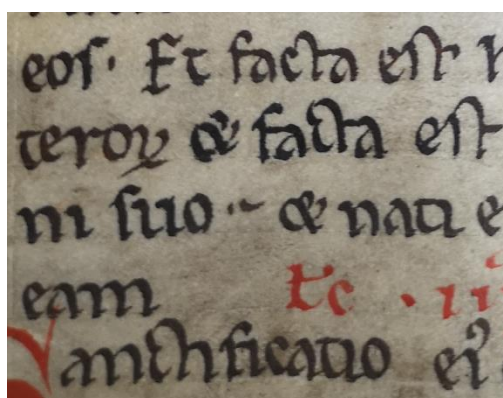 eos· Et facta est h
teroꝝ & facta est
ni suo ·~ & nati e
eam · ii
Sanctificatio eiꝰ